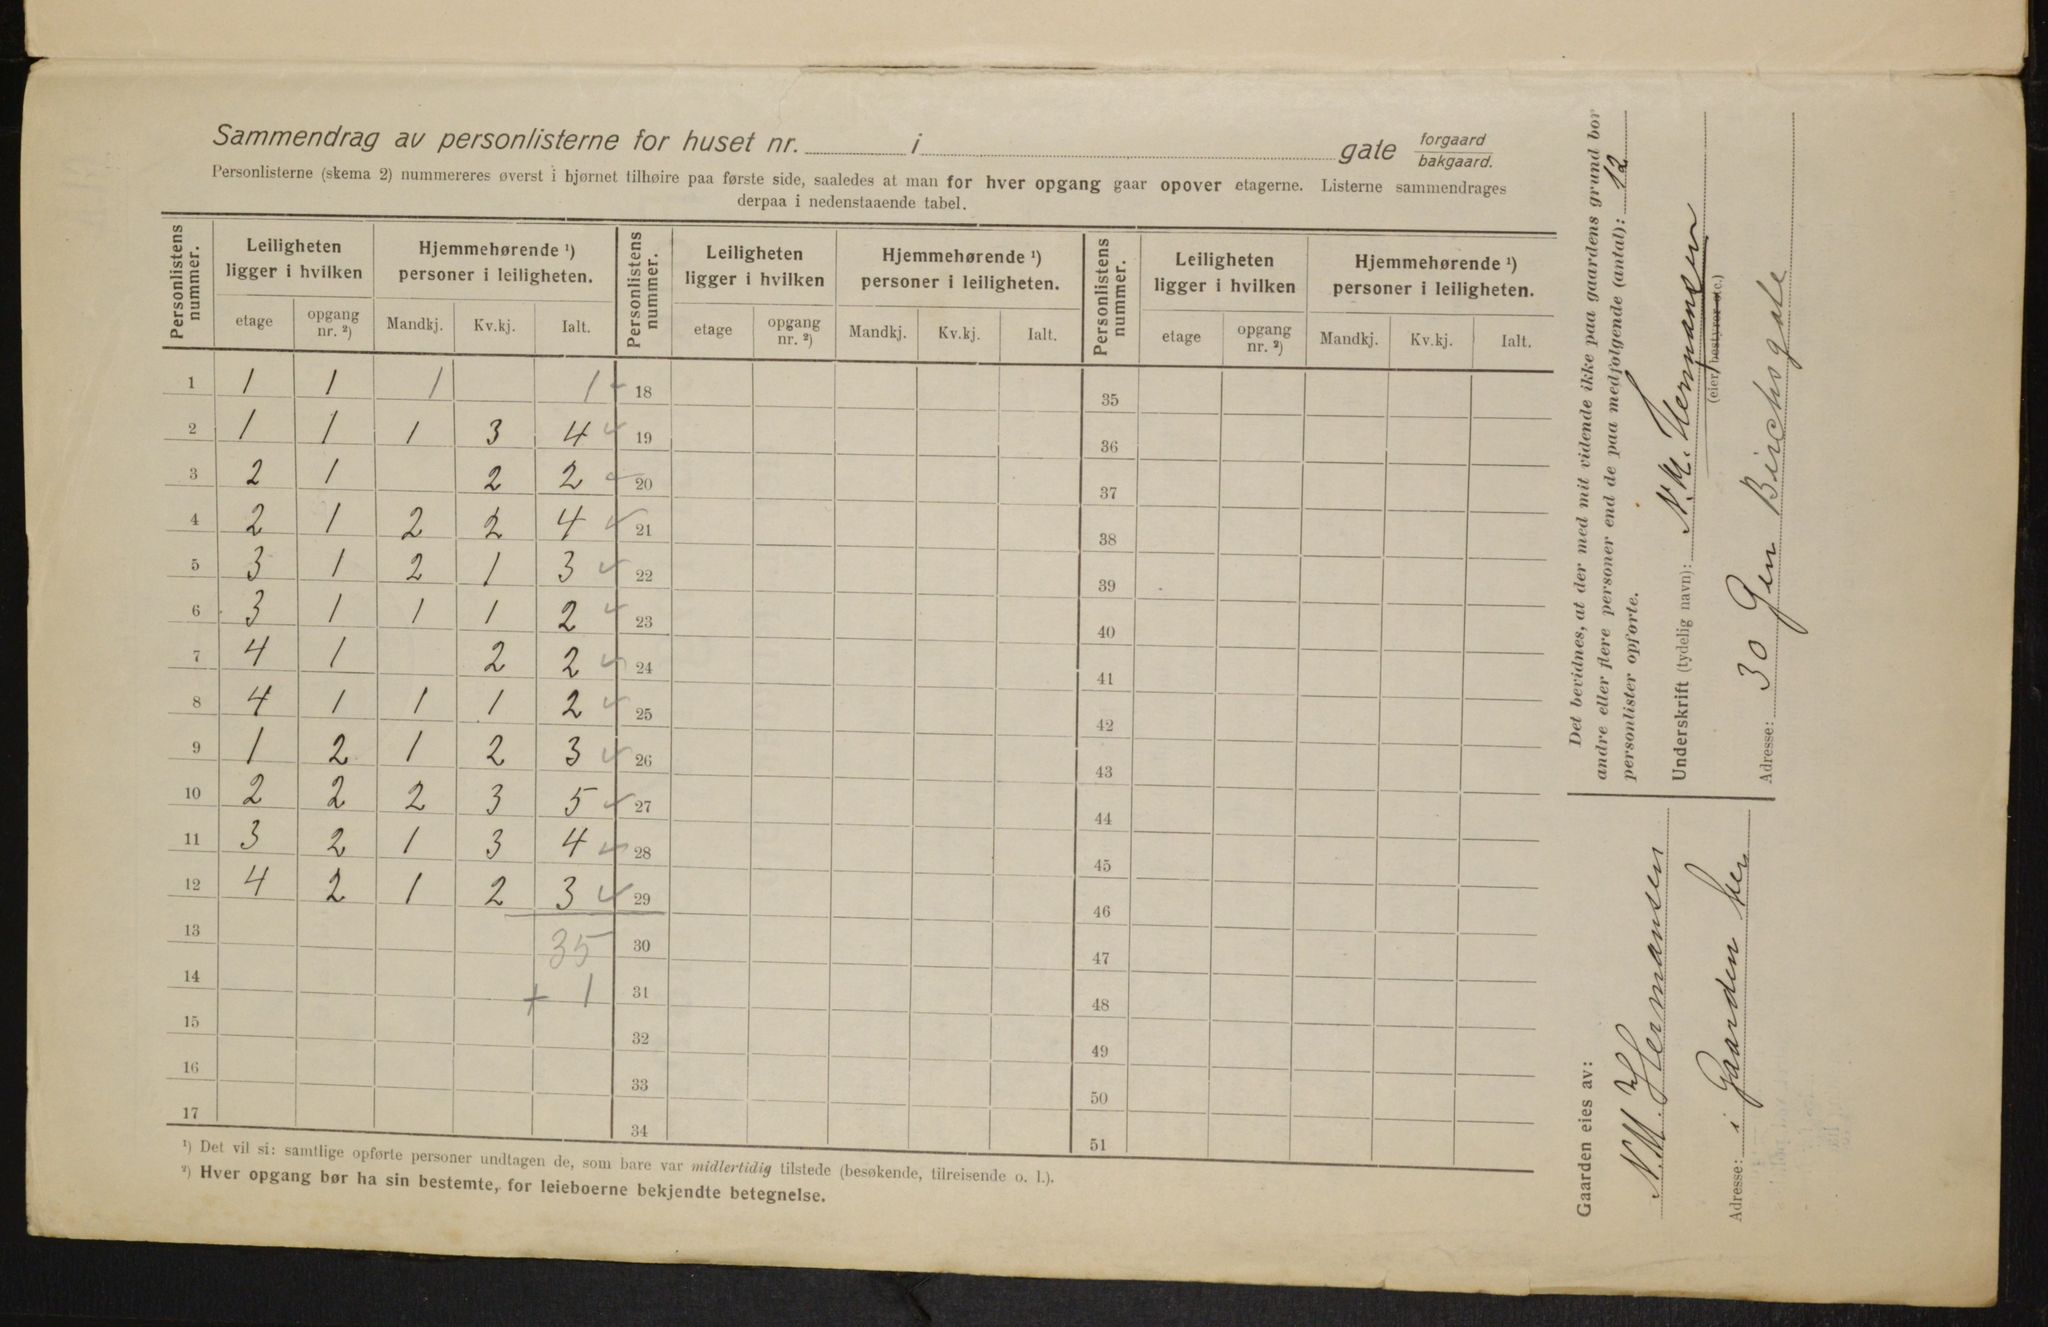 Sammendrag av personlisterne for huset nr. i gate forgaard bakgaard.
Personlisterne (skema 2) nummereres øverst i hjørnet tilhøire paa første side, saaledes at man for hver opgang gaar opover etagerne. Listerne sammendrages
derpaa i nedenstaaende tabel.
Personlistens nummer. Leiligheten ligger i hvilken Hjemmehørende ¹) personer i leiligheten. Personlistens nummer. Leiligheten ligger i hvilken Hjemmehørende ¹) personer i leiligheten. Personlistens nummer. Leiligheten ligger i hvilken Hjemmehørende ¹) personer i leiligheten.
etage opgang nr. ²) Mandkj. Kv.kj. Ialt. etage opgang nr. ²) Mandkj. Kv.kj. Ialt. etage opgang nr. ²) Mandkj. Kv.kj. Ialt.
1 1 1 1 1 18 35
2 1 1 1 3 4 19 36
3 2 1 2 2 20 37
4 2 1 2 2 4 21 38
5 3 1 2 1 3 22 39
6 3 1 1 1 2 23 40
7 4 1 2 2 24 41
8 4 1 1 1 2 25 42
9 1 2 1 2 3 26 43
10 2 2 2 3 5 27 44
11 3 2 1 3 4 28 45
12 4 2 1 2 3 29 46
13 35 30 47
14 + 1 31 48
15 32 49
16 33 50
17 34 51
¹) Det vil si: samtlige opførte personer undtagen de, som bare var midlertidig tilstede (besøkende, tilreisende o. l.).
²) Hver opgang bør ha sin bestemte, for leieboerne bekjendte betegnelse.
Det bevidnes, at der med mit vidende ikke paa gaardens grund bor
andre eller flere personer end de paa medfølgende (antal): 12
personlister opførte.
Underskrift (tydelig navn): N. M. Hermansen
(eier, bestyrer etc.)
Adresse: 30 Gen Birchsgate
Gaarden eies av:
N. M. Hermansen
Adresse: i Gaarden her